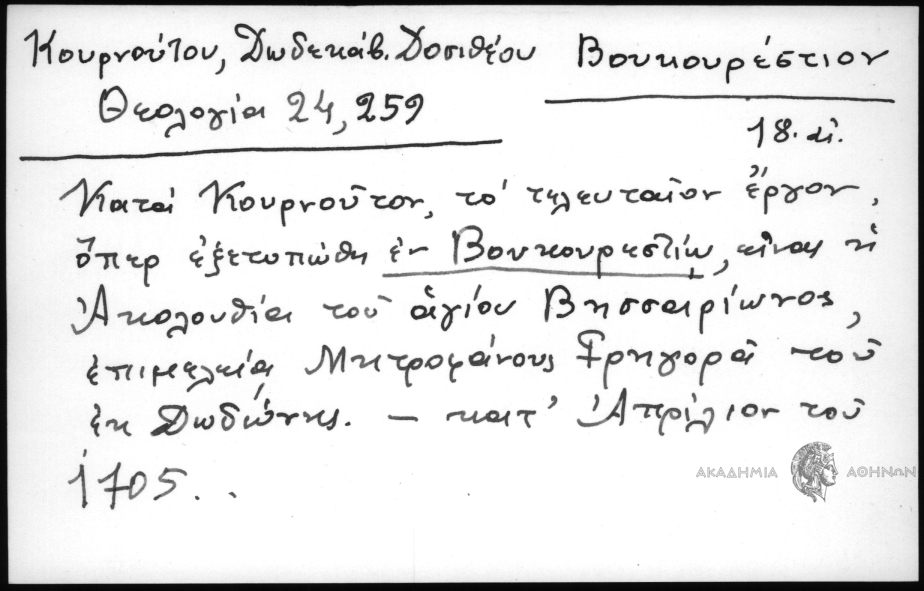 Κουρνούτου, Δωδεκάβ. Δοσιθέου
Θεολογία 24, 259
Βουκουρέστιον
18. αἰ.
Κατὰ Κουρνοῦτον, τὸ τελευταῖον ἔργον,
ὅπερ ἐξετυπώθη ἐν Βουκουρεστίῳ, εἶναι ἡ
Ἀκολουθία τοῦ ἁγίου Βησσαρίωνος,
ἐπιμελείᾳ Μητροφάνους Γρηγορᾶ τοῦ
ἐκ Δωδώνης. – κατ' Ἀπρίλιον τοῦ
1705..
ΑΚΑΔΗΜΙΑ ΑΘΗΝΩΝ